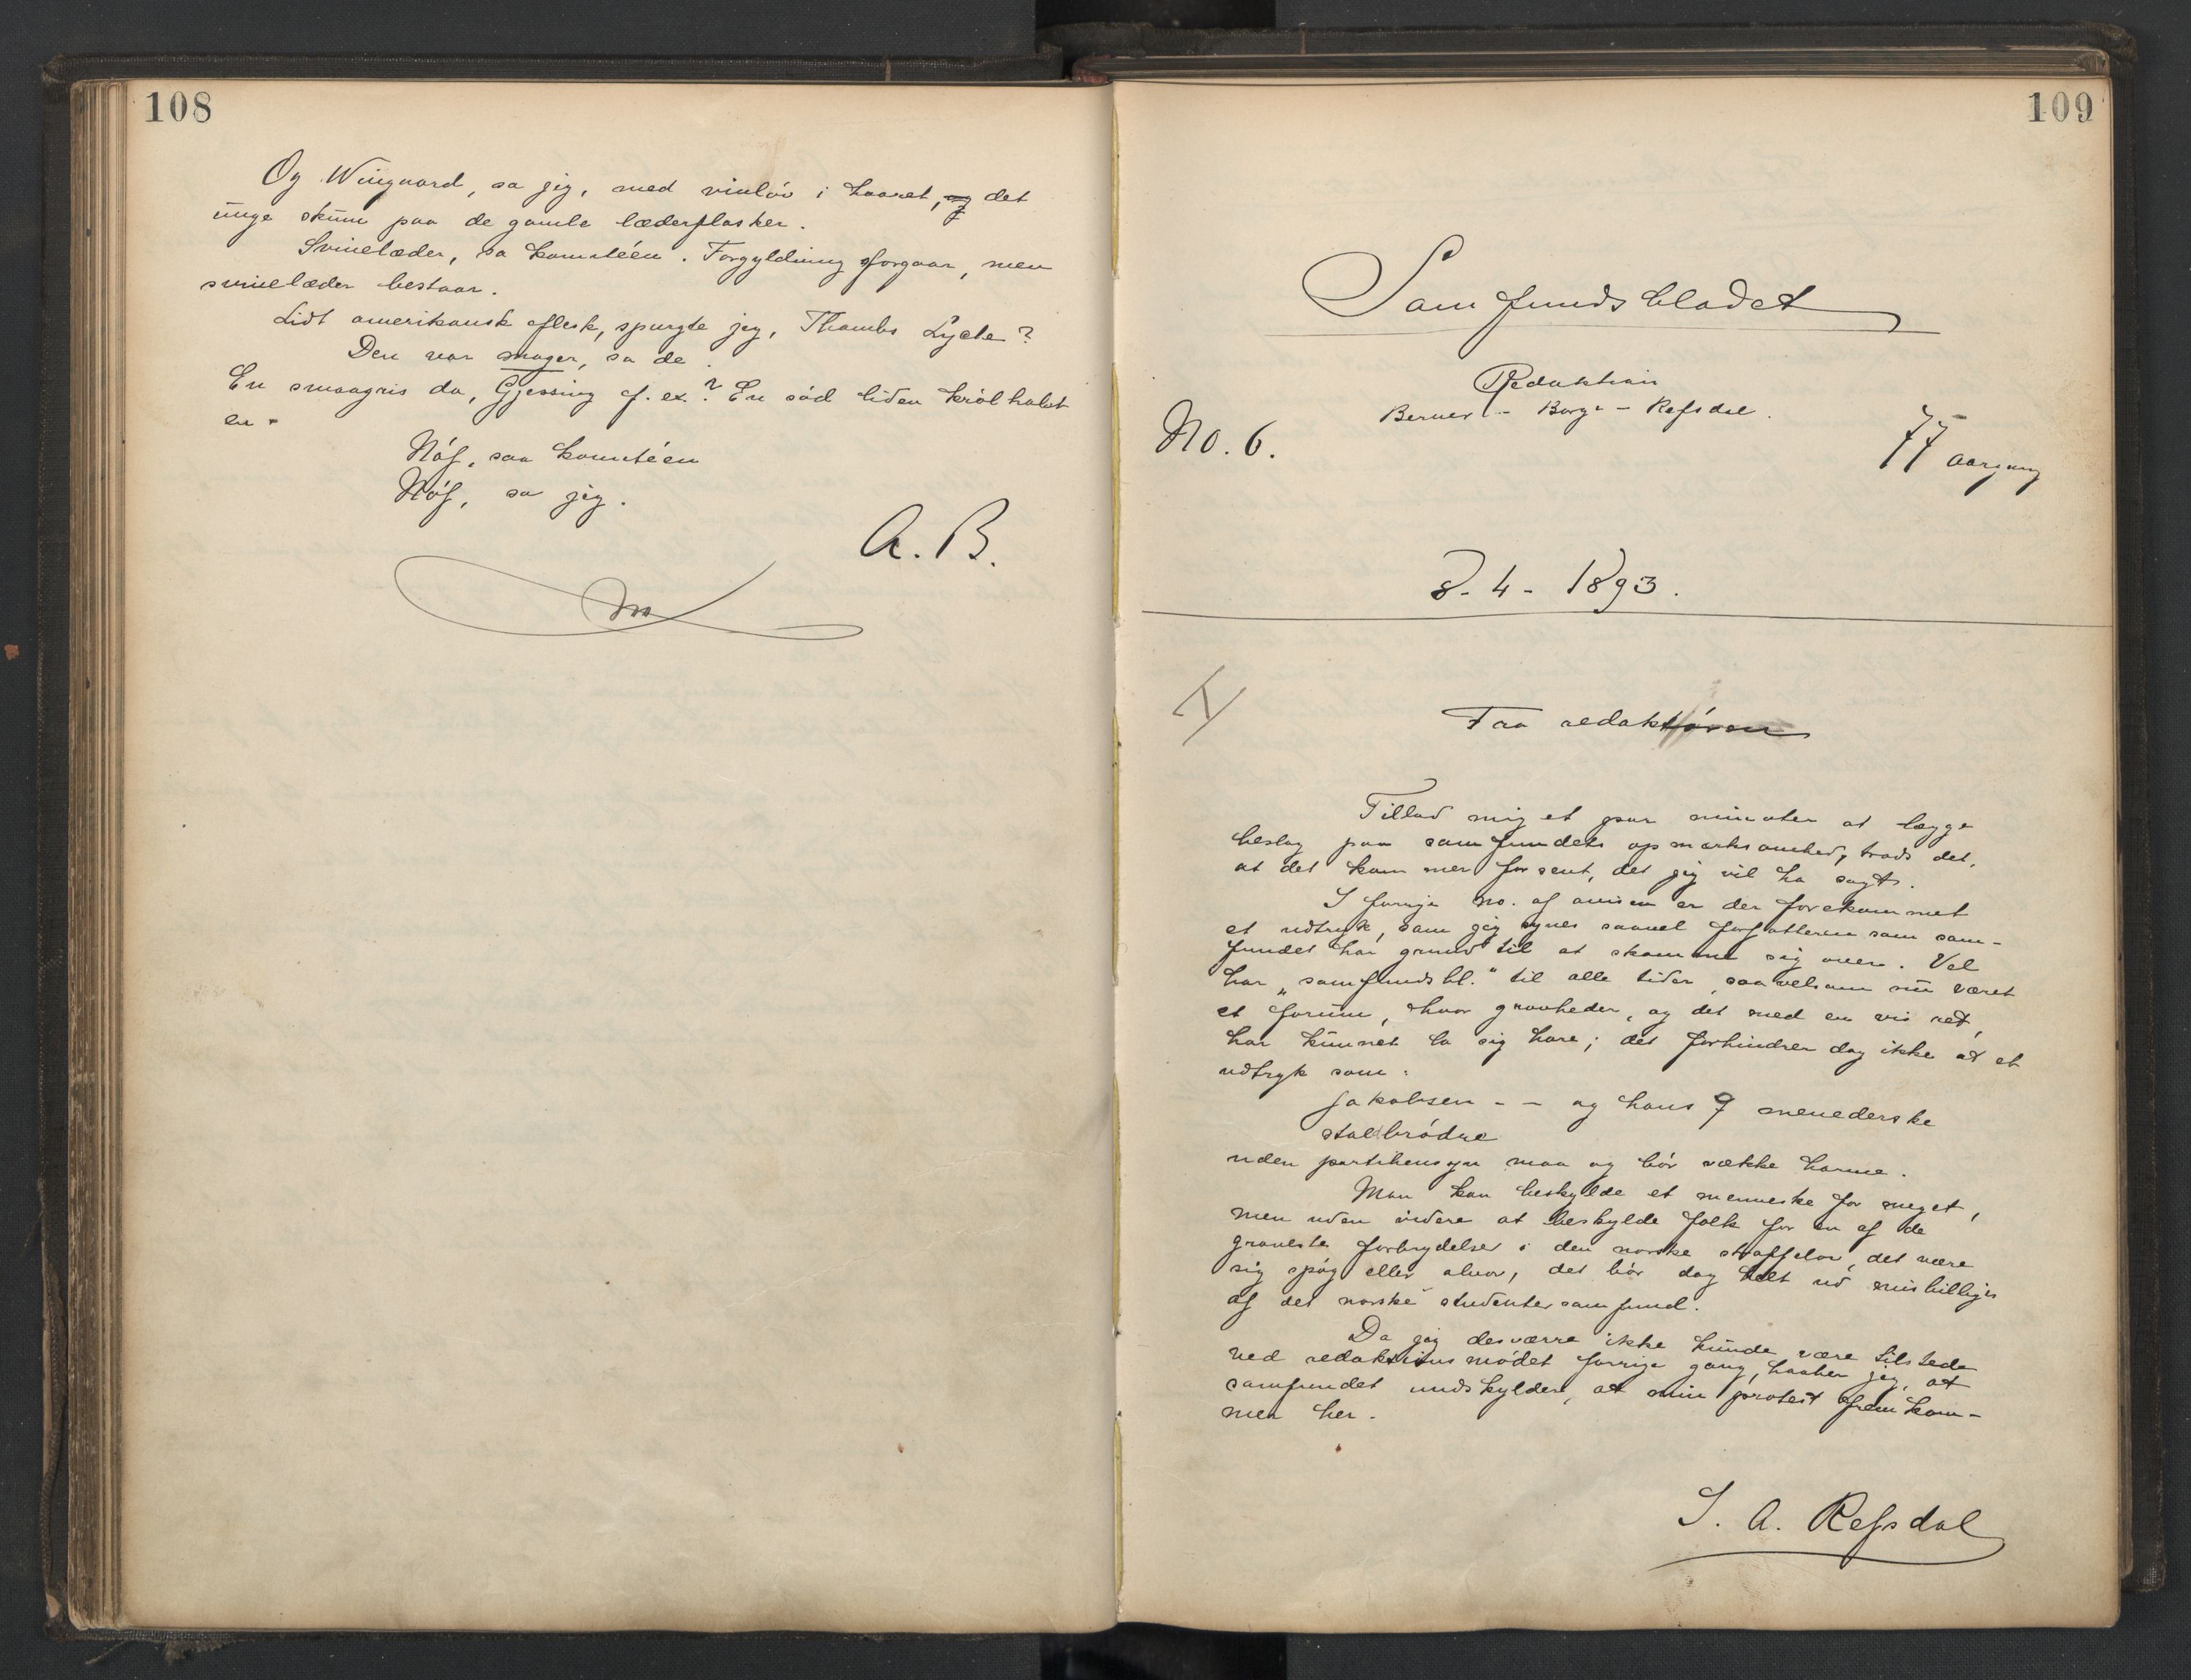 108
Og Wiingaard, sa jeg, med vinløv i haaret, og det
ũnge skũm paa de gamle læderflasker.
Svinelæder, sa komitéen. Forgyldning forgaar, men
svinelæder bestaar.
Lidt amerikansk flesk, spurgte jeg, Thambs Lyche?
Den var mager, sa de.
En smaagris da, Gjessing f. ex.? En sød liden krølhalet
en.
Nøf, saa komitéen
Nøf, sa jeg.
A. B.
109
Samfundsbladet
Redaktion
Berner - Borge - Refsdal.
No. 6.
77 aargang
8 - 4 - 1893.
Fra redaktøren
Tillad mig et par minuter at lægge
beslag paa samfundets opmærksomhed, trods det,
at det kommer for sent, det jeg vil ha sagt.
I forrige no. af avisen er der forekommet
et udtryk, som jeg synes saavel forfatteren som sam-
fundet har grund til at skamme sig over. Vel
har „samfundsbl." til alle tider, saavelsom nũ været
et forũm, hvor grovheder, og det med en vis ret,
har kũnnet la sig høre; det forhindrer dog ikke at et
udtryk som:
Jakobsen - - og hans 7 menederske
stallbrødre
uden partihensyn maa og bør vække harme.
Man kan beskylde et menneske for meget,
men uden videre at beskylde folk for en af de
groveste forbrydelser i den norske straffelov, det være
sig spøg eller alvor, det bør dog helt ud misbilliges
af det norske studentersamfund.
Da jeg desværre ikke kũnde være tilstede
ved redaktionsmødet forrige gang, haaber jeg, at
samfundet undskylder, at min protest fremkom-
mer her.
I. A. Refsdal